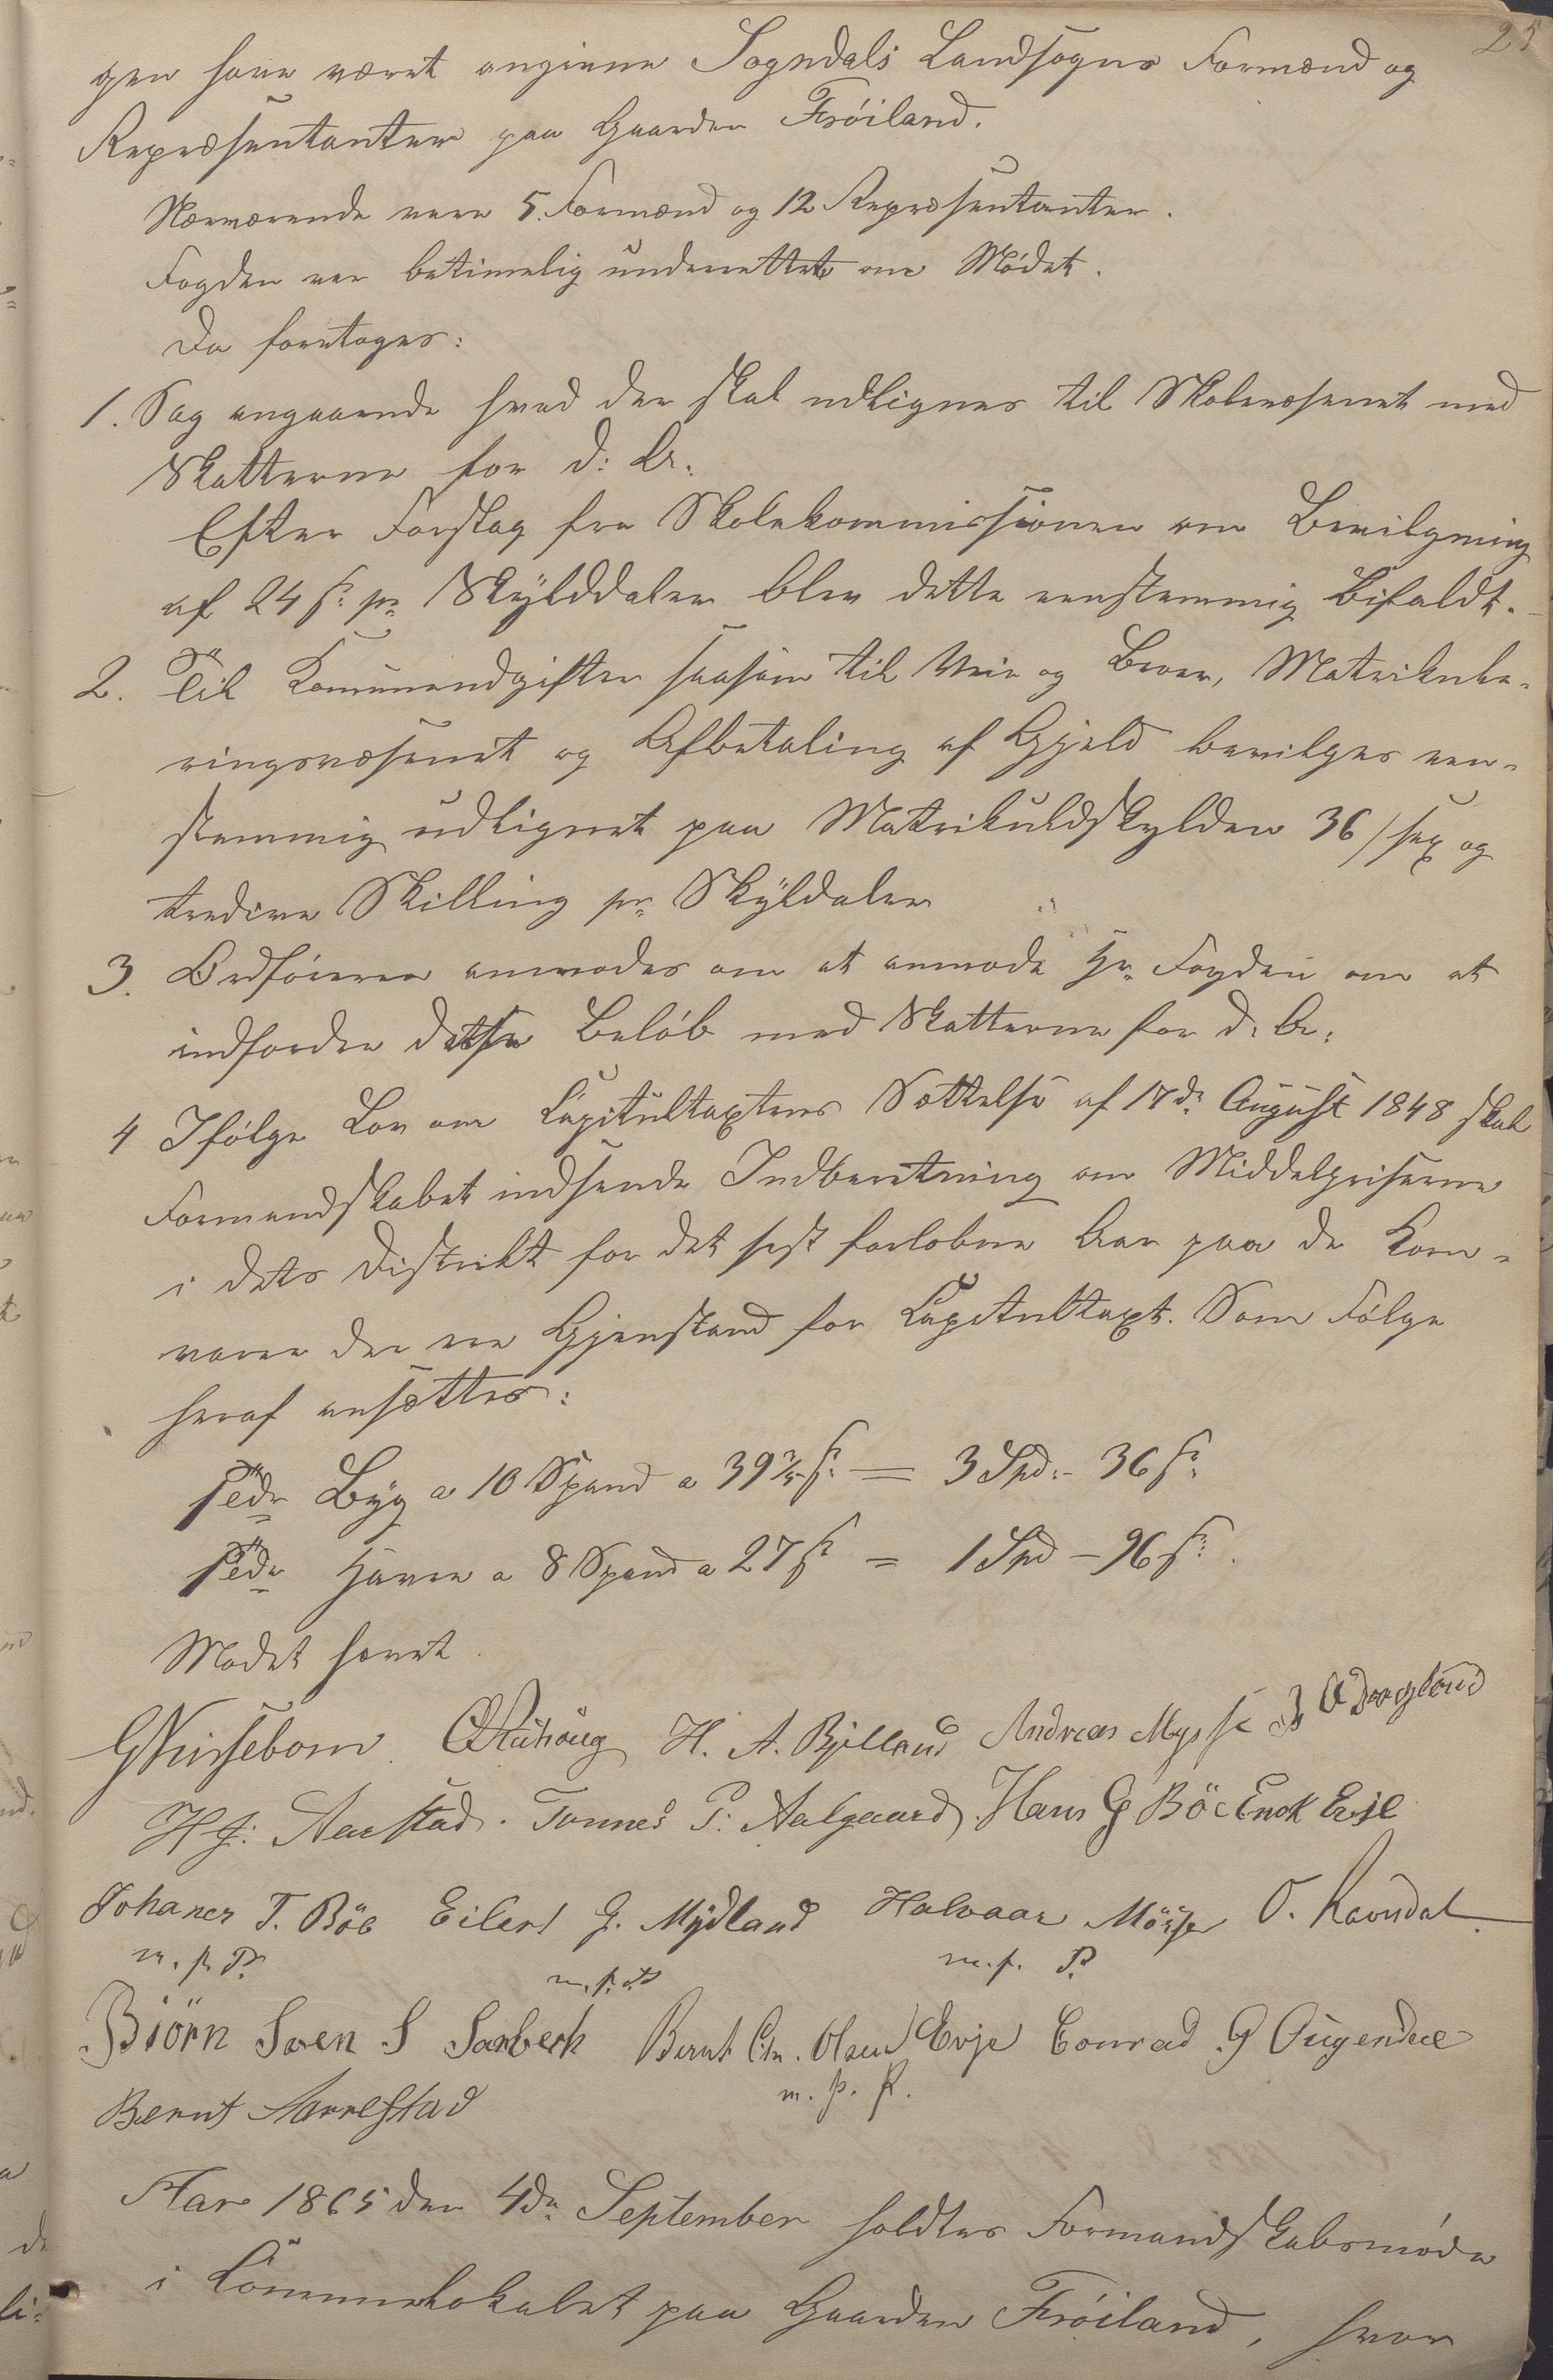 25
gen have været angivne Sogndals Landsogns Formænd og
Repræsentanter paa Gaarden Fröiland.
Nærværende vare 5. Formænd og 12 Repræsentanter.
Fogden var betimelig underrettet om Mödet.
Da foretoges:
1. Sag angaaende hvad der skal udlignes til Skolevæsenet med
Skatterne for d: A.
Efter Forslag fra Skolekommissionen om Bevilgning
af 24 s: pr Skylddaler blev dette eenstemmig Bifaldt.
2. Til Komuneudgifter saasom til Veie og Broer, Matrikule-
ringsvæsenet og Afbetaling af Gjeld bevilges een-
stemmig udlignet paa Matrikuldskylden 36/ sex og
tredive Skilling pr Skyldaler
3. Ordföreren anmodes om at anmode Hr Fogden om at
indfordre disse Belöb med Skatterne for d. A.
4 Ifölge Lov om Capitultaxtens Sættelse af 17de August 1848 skal
Formandskabet indsende Indberetning om Middelpriserne
i dets Distrikt for det sist forlobne Aar paa de Korn-
varer der ere Gjenstand for Capitultaxt. Som Fölge
heraf ansættes:
1 Tde Byg a 10 Spand a 39 3/5 s: = 3 Spd. - 36 s:
1 Tde Havre a 8 Spand a 27 s: = 1 Spd - 96 s:.
Modet hævet.
G Nissebom. H. A. Bjelland Andreas Mysse
H J: Aarstad. Tönnes P: Aalgaard. Hans G Böe Enok Evje
Johanes T. Böe Eilert G. Mydland Halvaar Mösse O. Ravndal
m. p. P. m. p. P. m. p. P.
Björn Sven S Sørbech Bernt Chr. Olsen Evje Conrad G Ougendal
m. p. P.
Bernt Aarrestad
Aar 1865 den 4de September holdtes Formandskabsmöde
i Communelokalet paa Gaarden Fröiland, hvor